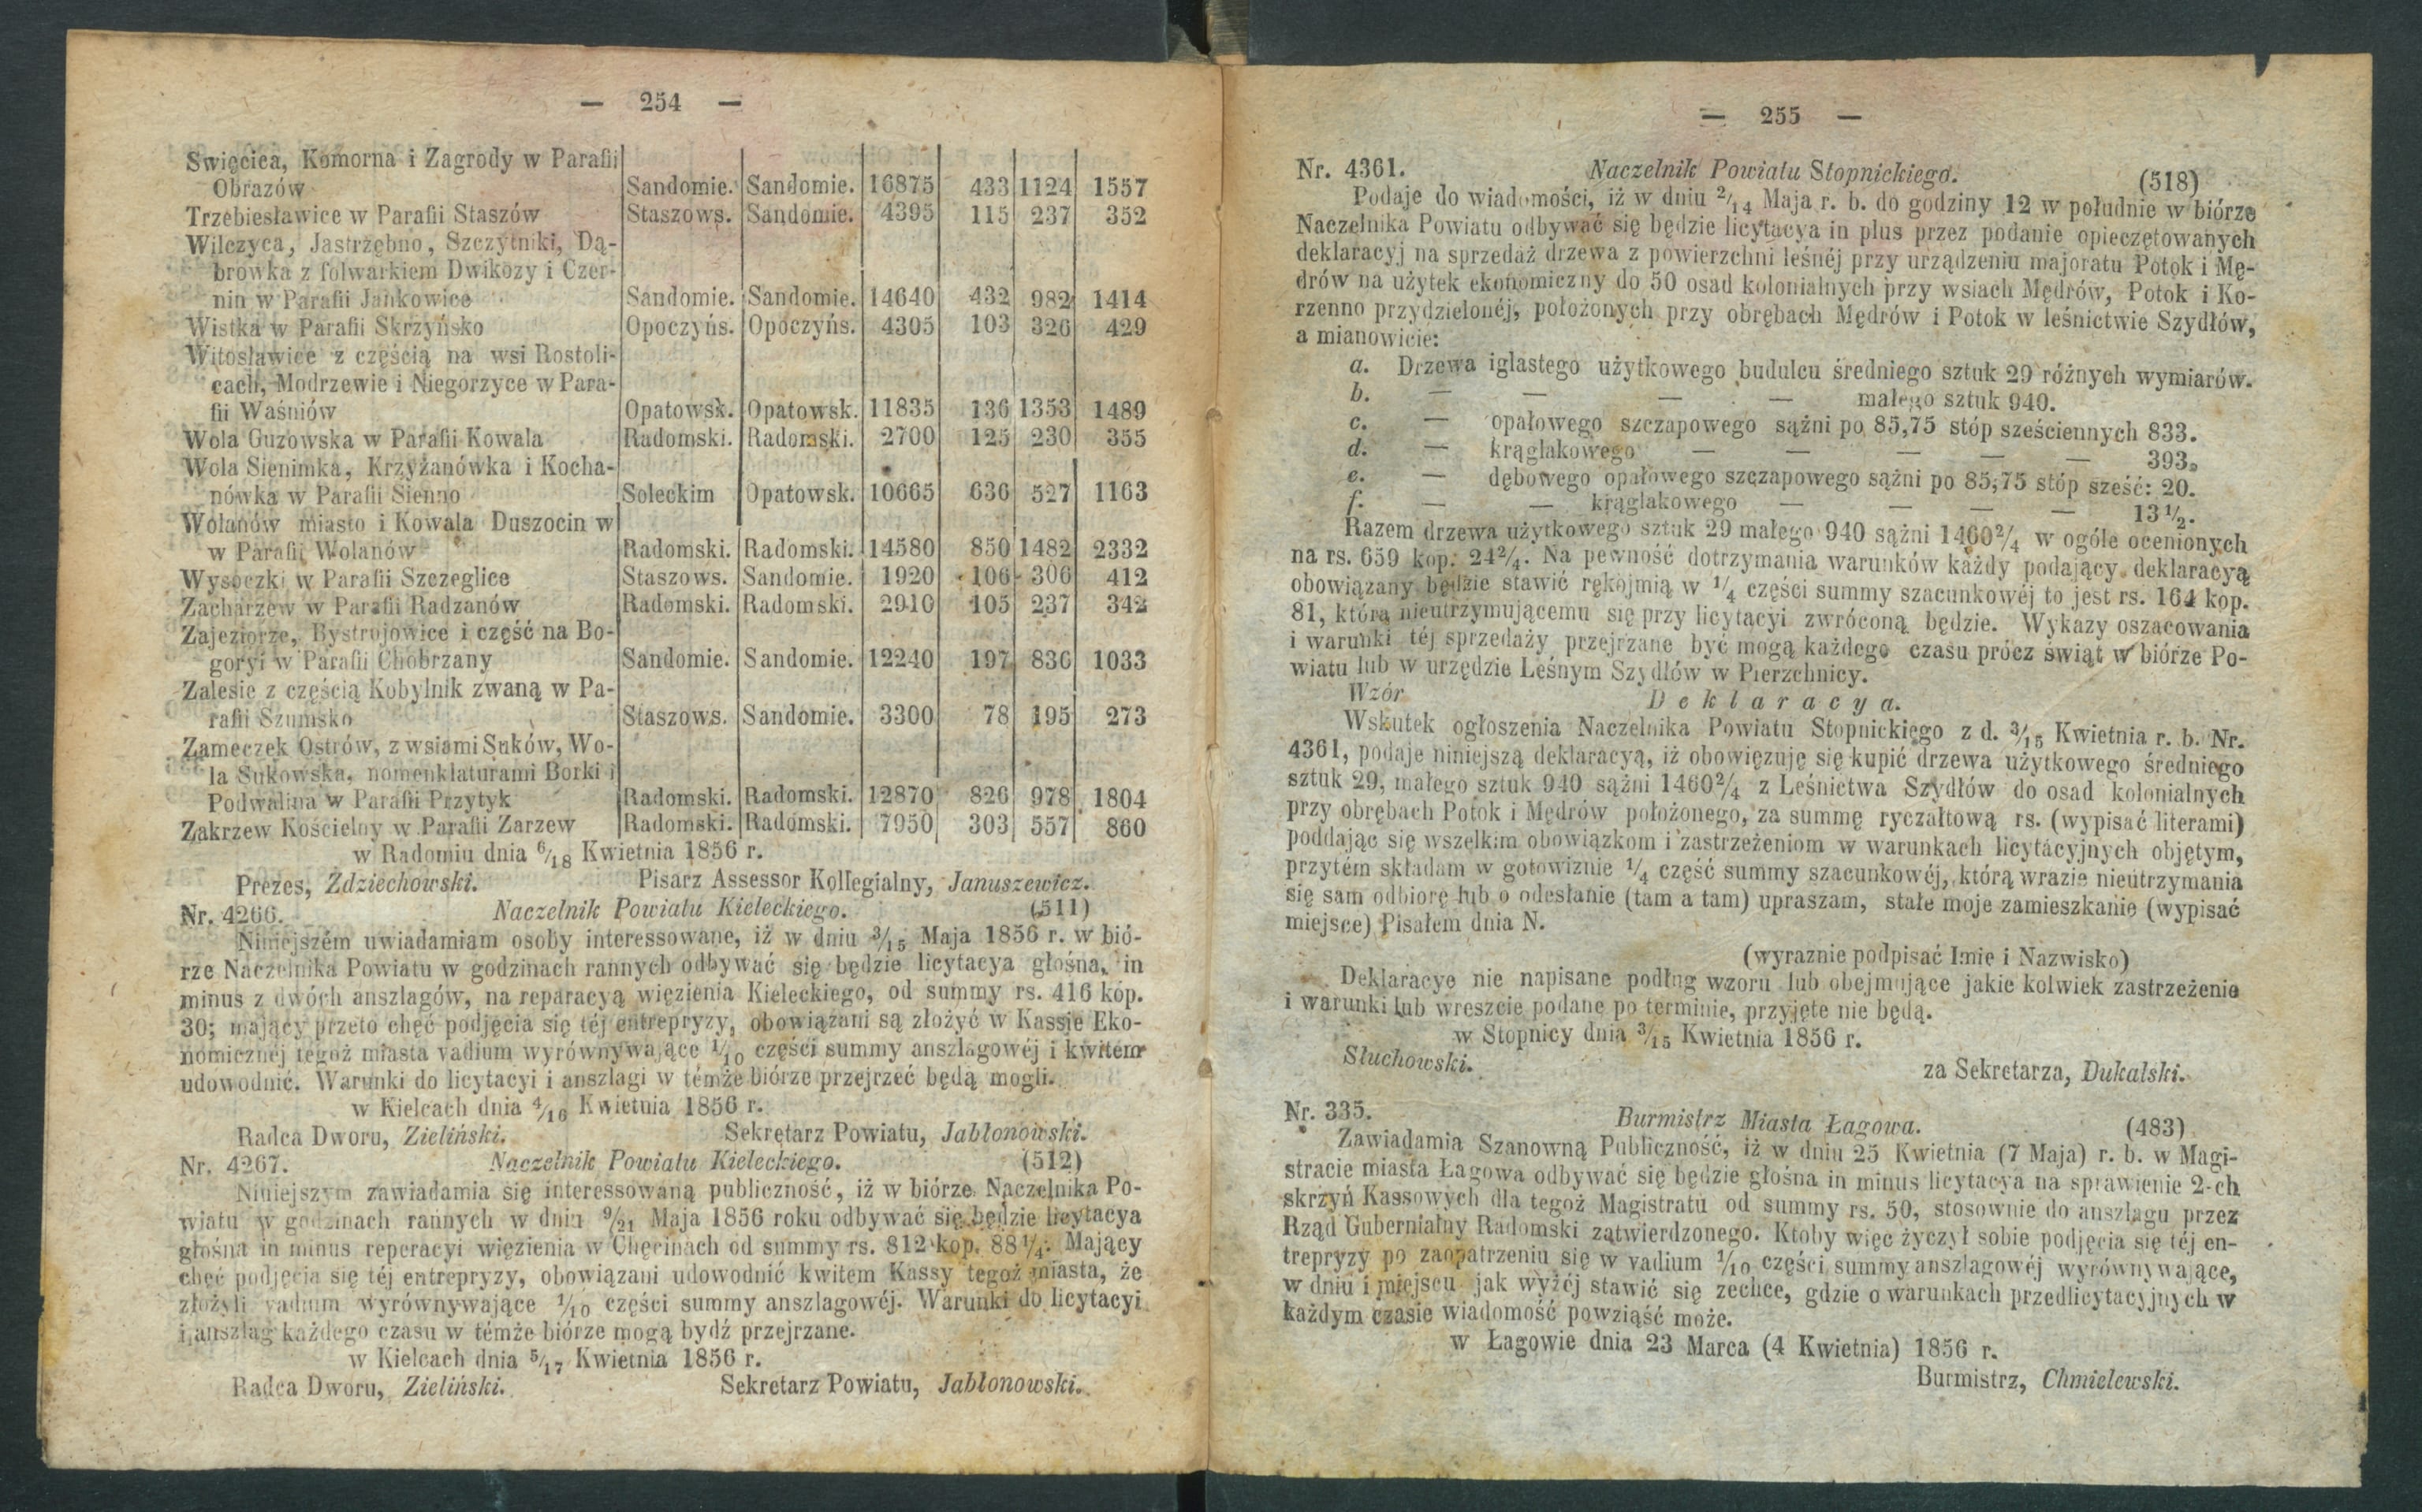 — 254 —
Swięcica, Komorna i Zagrody w Parafii
Obrazów Sandomie. Sandomie. 16875 433 1124 1557
Trzebiesławice w Parafii Staszów Staszows. Sandomie. 4395 115 237 352
Wilczyca, Jastrzębno, Szczytniki, Dą-
browka z folwarkiem Dwikozy i Czer-
nin w Parafii Jankowice Sandomie. Sandomie. 14640 432 982 1414
Wistka w Parafii Skrzyńsko Opoczyńs. Opoczyńs. 4305 103 326 429
Witosławice z częścią na wsi Rostoli-
cach, Modrzewie i Niegorzyce w Para-
fii Waśniów Opatowsk. Opatowsk. 11835 136 1353 1489
Wola Guzowska w Parafii Kowala Radomski. Radomski. 2700 125 230 355
Wola Sienimka, Krzyżanówka i Kocha-
nówka w Parafii Sienno Soleckim Opatowsk. 10665 636 527 1163
Wolanów miasto i Kowala Duszocin w
w Parafii Wolanów Radomski. Radomski. 14580 850 1482 2332
Wysoczki w Parafii Szczeglice Staszows. Sandomie. 1920 106 306 412
Zacharzew w Parafii Radzanów Radomski. Radomski. 2910 105 237 342
Zajeziorze, Bystrojowice i część na Bo-
goryi w Parafii Chobrzany Sandomie. Sandomie. 12240 197 836 1033
Zalesie z częścią Kobylnik zwaną w Pa-
rafii Szumsko Staszows. Sandomie. 3300 78 195 273
Zameczek Ostrów, z wsiami Suków, Wo-
la Sukowska, nomenklaturami Borki i
Podwalina w Parafii Przytyk Radomski. Radomski. 12870 826 978 1804
Zakrzew Kościelny w Parafii Zarzew Radomski. Radomski. 7950 303 557 860
w Radomiu dnia 6/18 Kwietnia 1856 r.
Prezes, Zdziechowski. Pisarz Assessor Kollegialny, Januszewicz.
Nr. 4266. Naczelnik Powiatu Kieleckiego. (511)
Niniejszém uwiadamiam osoby interessowane, iż w dniu 3/15 Maja 1856 r. w bió-
rze Naczelnika Powiatu w godzinach rannych odbywać się będzie licytacya głośna, in
minus z dwóch anszlagów, na reparacyą więzienia Kieleckiego, od summy rs. 416 kop.
30; mający przeto chęć podjęcia się téj entrepryzy, obowiązani są złożyć w Kassie Eko-
nomicznéj tegoż miasta vadium wyrównywające 1/10 części summy anszlagowéj i kwitem
udowodnić. Warunki do licytacyi i anszlagi w témże biórze przejrzeć będą mogli.
w Kielcach dnia 4/16 Kwietnia 1856 r.
Radca Dworu, Zieliński. Sekretarz Powiatu, Jabłonowski.
Nr. 4267. Naczelnik Powiatu Kieleckiego. (512)
Niniejszym zawiadamia się interessowaną publiczność, iż w biórze Naczelnika Po-
wiatu w godzinach rannych w dniu 9/21 Maja 1856 roku odbywać się będzie licytacya
głośna in minus reperacyi więzienia w Chęcinach od summy rs. 812 kop. 88 1/4. Mający
chęć podjęcia się téj entrepryzy, obowiązani udowodnić kwitem Kassy tegoż miasta, że
złożyli vadium wyrównywające 1/10 części summy anszlagowéj. Warunki do licytacyi
i anszlag każdego czasu w témże biórze mogą bydź przejrzane.
w Kielcach dnia 5/17 Kwietnia 1856 r.
Radca Dworu, Zieliński. Sekretarz Powiatu, Jabłonowski.
— 255 —
Nr. 4361. Naczelnik Powiatu Stopnickiego. (518)
Podaje do wiadomości, iż w dniu 2/14 Maja r. b. do godziny 12 w południe w biórze
Naczelnika Powiatu odbywać się będzie licytacya in plus przez podanie opieczętowanych
deklaracyj na sprzedaż drzewa z powierzchni leśnéj przy urządzeniu majoratu Potok i Mę-
drów na użytek ekonomiczny do 50 osad kolonialnych przy wsiach Mędrów, Potok i Ko-
rzenno przydzielonéj, położonych przy obrębach Mędrów i Potok w leśnictwie Szydłów,
a mianowicie:
a. Drzewa iglastego użytkowego budulcu średniego sztuk 29 różnych wymiarów.
b. — — — — małego sztuk 940.
c. — opałowego szczapowego sążni po 85,75 stóp sześciennych 833.
d. — krąglakowego — — — — — 393.
e. — dębowego opałowego szczapowego sążni po 85,75 stóp sześć: 20.
f. — — krąglakowego — — — — 13 1/2.
Razem drzewa użytkowego sztuk 29 małego 940 sążni 1460 2/4 w ogóle ocenionych
na rs. 659 kop. 24 2/4. Na pewność dotrzymania warunków każdy podający deklaracyą
obowiązany będzie stawić rękojmią w 1/4 części summy szacunkowéj to jest rs. 164 kop.
81, którą nieutrzymującemu się przy licytacyi zwróconą będzie. Wykazy oszacowania
i warunki téj sprzedaży przejrzane być mogą każdego czasu prócz świąt w biórze Po-
wiatu lub w urzędzie Leśnym Szydłów w Pierzchnicy.
Wzór Deklaracya.
Wskutek ogłoszenia Naczelnika Powiatu Stopnickiego z d. 3/15 Kwietnia r. b. Nr.
4361, podaje niniejszą deklaracyą, iż obowięzuję się kupić drzewa użytkowego średniego
sztuk 29, małego sztuk 940 sążni 1460 2/4 z Leśnictwa Szydłów do osad kolonialnych
przy obrębach Potok i Mędrów położonego, za summę ryczałtową rs. (wypisać literami)
poddając się wszelkim obowiązkom i zastrzeżeniom w warunkach licytacyjnych objętym,
przytém składam w gotowiznie 1/4 część summy szacunkowéj, którą wrazie nieutrzymania
się sam odbiorę lub o odesłanie (tam a tam) upraszam, stałe moje zamieszkanie (wypisać
miejsce) Pisałem dnia N.
(wyraznie podpisać Imie i Nazwisko)
Deklaracye nie napisane podług wzoru lub obejmujące jakie kolwiek zastrzeżenie
i warunki lub wreszcie podane po terminie, przyjęte nie będą.
w Stopnicy dnia 3/15 Kwietnia 1856 r.
Słuchowski. za Sekretarza, Dukalski.
Nr. 335. Burmistrz Miasta Łagowa. (483)
Zawiadamia Szanowną Publiczność, iż w dniu 25 Kwietnia (7 Maja) r. b. w Magi-
stracie miasta Łagowa odbywać się będzie głośna in minus licytacya na sprawienie 2-ch
skrzyń Kassowych dla tegoż Magistratu od summy rs. 50, stosownie do anszlagu przez
Rząd Gubernialny Radomski zatwierdzonego. Ktoby więc życzył sobie podjęcia się téj en-
trepryzy po zaopatrzeniu się w vadium 1/10 części summy anszlagowéj wyrównywające,
w dniu i miejscu jak wyżéj stawić się zechce, gdzie o warunkach przedlicytacyjnych w
każdym czasie wiadomość powziąść może.
w Łagowie dnia 23 Marca (4 Kwietnia) 1856 r.
Burmistrz, Chmielewski.